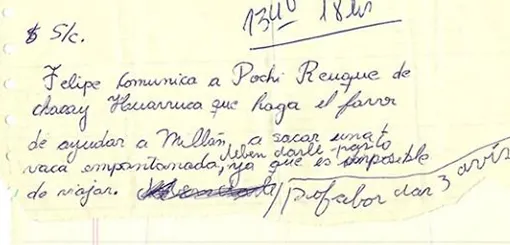 1340 18 hs
$ S/c.
Felipe comunica a Pochi Reuque de
chacay Huarruca que haga el favor
de ayudar a Millán, a sacar una
vaca empantanada, deben darle pasto
ya que es imposible
de viajar. // profabor dar 3 avis